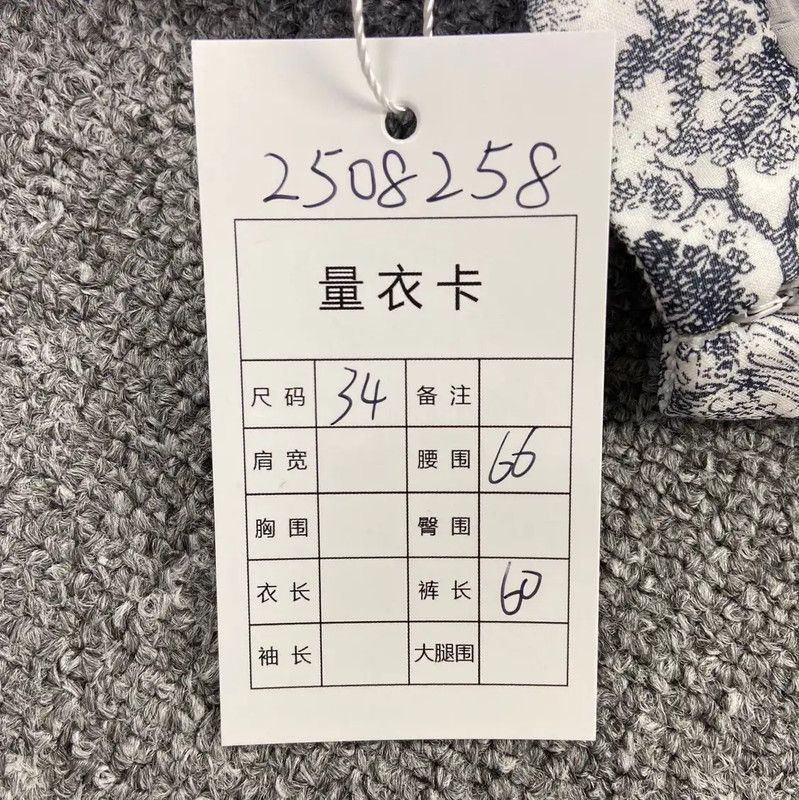 2508258
量衣卡
尺码 34 备注
肩宽 腰围 66
胸围 臀围
衣长 裤长 60
袖长 大腿围